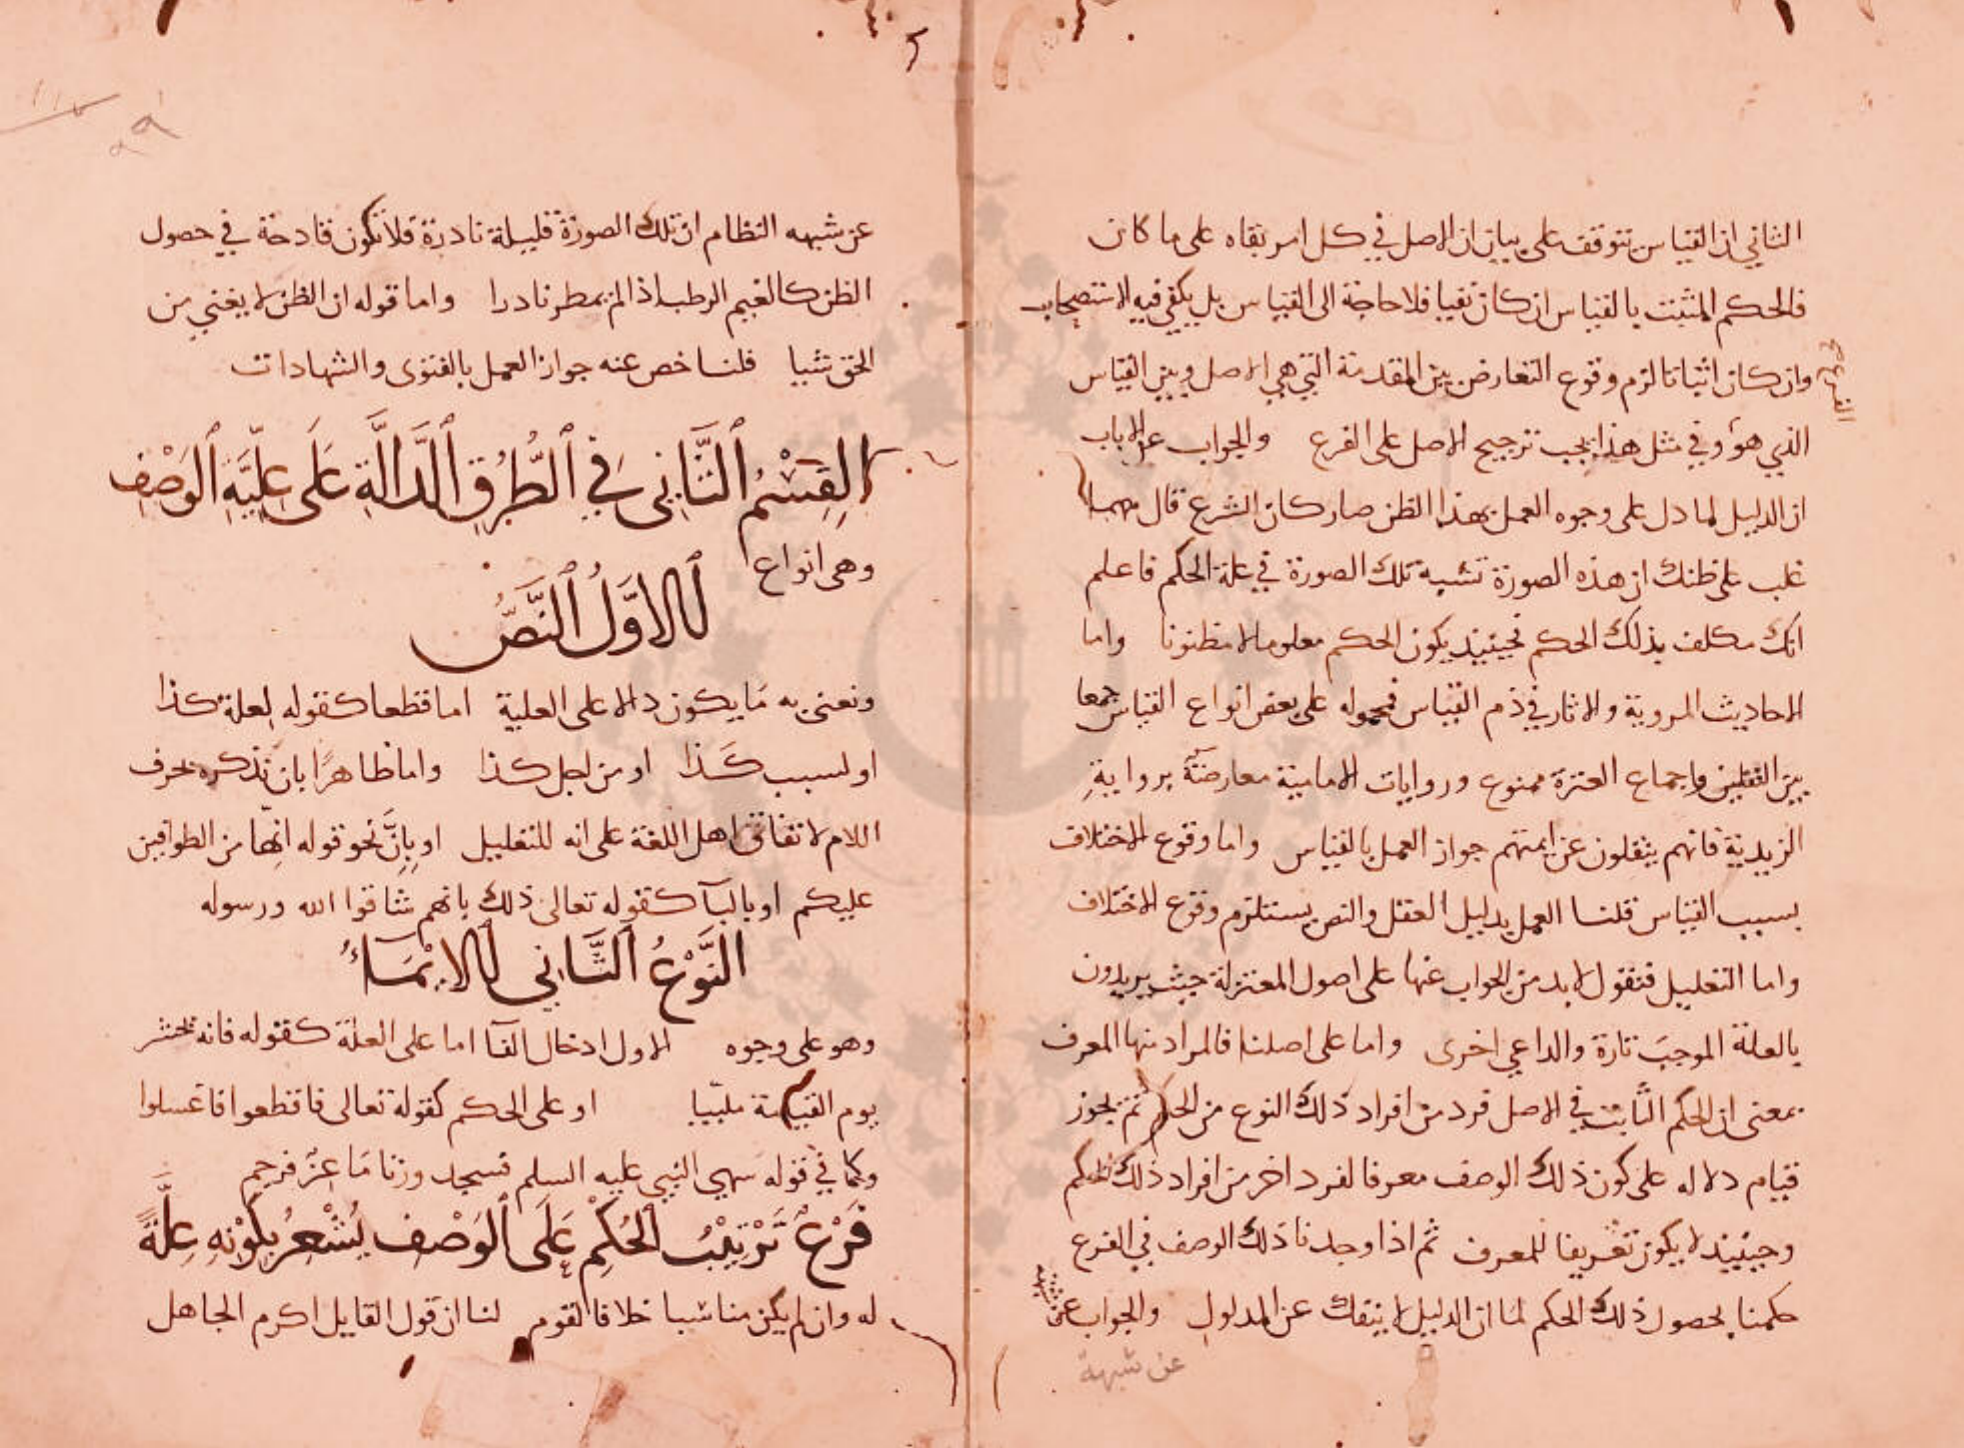 الثاني ان القياس يتوقف على بيان ان الاصل في كل امر بقاه على ما كان
فالحكم المثبت بالقياس ان كان نفيا فلا حاجة الى القياس بل يكفي فيه الاستصحاب
وان كان اثباتا لزم وقوع التعارض بين المقدمة التي هي الاصل وبين القياس
الذي هو وفي مثل هذا يجب ترجيح الاصل على الفرع والجواب عن الاباب
ان الدليل لما دل على وجوه العمل بهذا الظن صار كان الشرع قال مهما
غلب على ظنك ان هذه الصورة تشبه تلك الصورة في علة الحكم فاعلم
انك مكلف بذلك الحكم فحينيذ يكون الحكم معلوما لا مظنونا واما
الاحاديث المروية والاثار في ذم القياس فمحموله على بعض انواع القياس جمعا
بين النقلين واجماع العترة ممنوع وروايات الامامية معارضة برواية
الزيدية فانهم ينقلون عن ايمتهم جواز العمل بالقياس واما وقوع الاختلاف
بسبب القياس قلنا العمل بدليل العقل والنص يستلزم وقوع الاختلاف
واما التعليل فنقول لابد من الجواب عنها على اصول المعتزلة حيث يريدون
بالعلة الموجب تارة والداعي اخرى واما على اصلنا فالمراد منها المعرف
بمعنى ان الحكم الثابت في الاصل فرد من افراد ذلك النوع من الحكم ثم يجوز
قيام دلاله على كون ذلك الوصف معرفا لفرد اخر من افراد ذلك الحكم
وحينيذ لا يكون تعريفا للمعرف ثم اذا وجدنا ذلك الوصف في الفرع
حكمنا بحصول ذلك الحكم لما ان الدليل لا ينفك عن المدلول والجواب عن
عن شبهة
عن شبهه النظام ان تلك الصورة قليلة نادرة فلا تكون قادحة في حصول
الظن كالغيم الرطب اذا لم يمطر نادرا واما قوله ان الظن لا يغني من
الحق شيا قلنا خص عنه جواز العمل بالفتوى والشهادات
القسم الثاني في الطرق الدالة على علية الوصف
وهي انواع
الاول النص
ونعني به ما يكون دالا على العلية اما قطعا كقوله لعلة كذا
او لسبب كذا او من اجل كذا واما ظاهرا بان تذكره بحرف
اللام لاتفاق اهل اللغة على انه للتعليل او بان نحو قوله انها من الطوافين
عليكم او بالبآ كقوله تعالى ذلك بانهم شاقوا الله ورسوله
النوع الثاني الايماء
وهو على وجوه الاول ادخال الفآ اما على العلة كقوله فانه يحشر
يوم القيمة ملبيا او على الحكم كقوله تعالى فاقطعوا فاغسلوا
وكما في قوله سهي النبي عليه السلم فسجد وزنا ماعز فرجم
فرع ترتيب الحكم على الوصف يشعر بكونه علة
له وان لم يكن مناسبا خلافا لقوم لنا ان قول القايل اكرم الجاهل